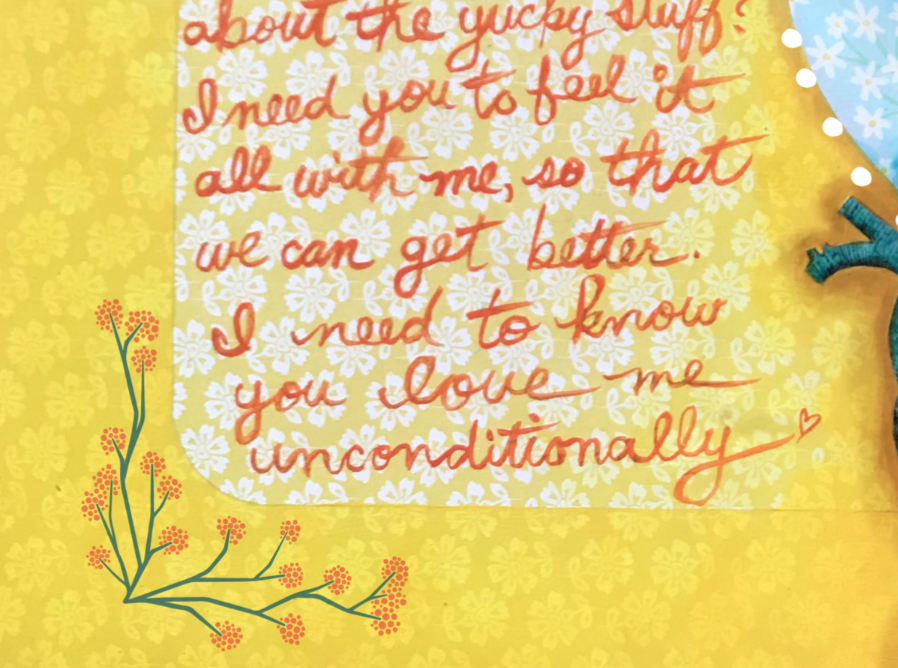 about the yucky stuff?
I need you to feel it
all with me, so that
we can get better.
I need to know
you love me
unconditionally